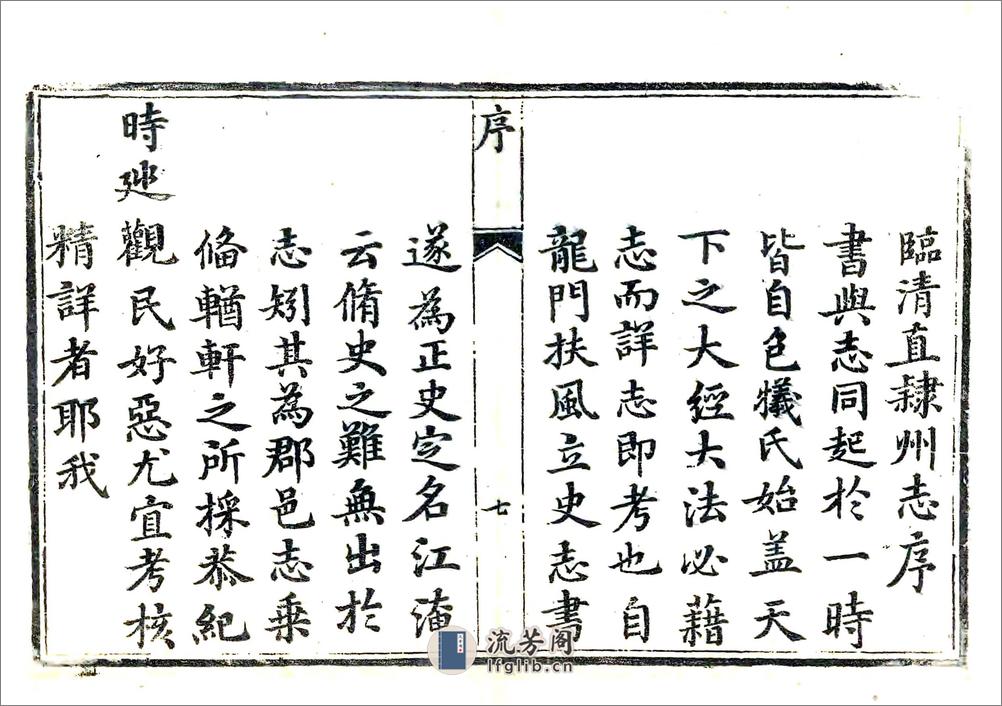 臨清直隸州志序
書與志同起於一時
皆自包犧氏始蓋天
下之大經大法必藉
志而詳志即考也自
龍門扶風立史志書
序
七
遂為正史定名江淹
云脩史之難無出於
志矧其為郡邑志乗
俻輶軒之所採恭紀
時廵觀民好惡尤宜考核
精詳者耶我
流芳阁
lfglib.cn